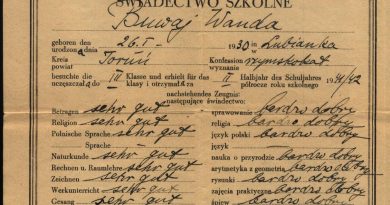 ŚWIADECTWO SZKOLNE
Buwaj Wanda
geboren den urodzon a dnia 26. I. 1930 in w Lubianka
Kreis powiat Toruń Konfession wyznanie rzymskokat
besuchte die III Klasse und erhielt für das II Halbjahr des Schuljahres 1941/42
uczęszczał a do klasy i otrzymał a za półrocze roku szkolnego
nachstehendes Zeugnis:
następujące świadectwo:
Betragen sehr gut sprawowanie bardzo dobry
Religion sehr gut religia bardzo dobry
Polnische Sprache sehr gut język polski bardzo dobry
Sprache język
Naturkunde sehr gut nauka o przyrodzie bardzo dobry
Rechnen u. Raumlehre sehr gut arytmetyka z geometrią bardzo dobry
Zeichnen sehr gut rysunki bardzo dobry
Werkunterricht sehr gut zajęcia praktyczne bardzo dobry
Gesang sehr gut śpiew bardzo dobry